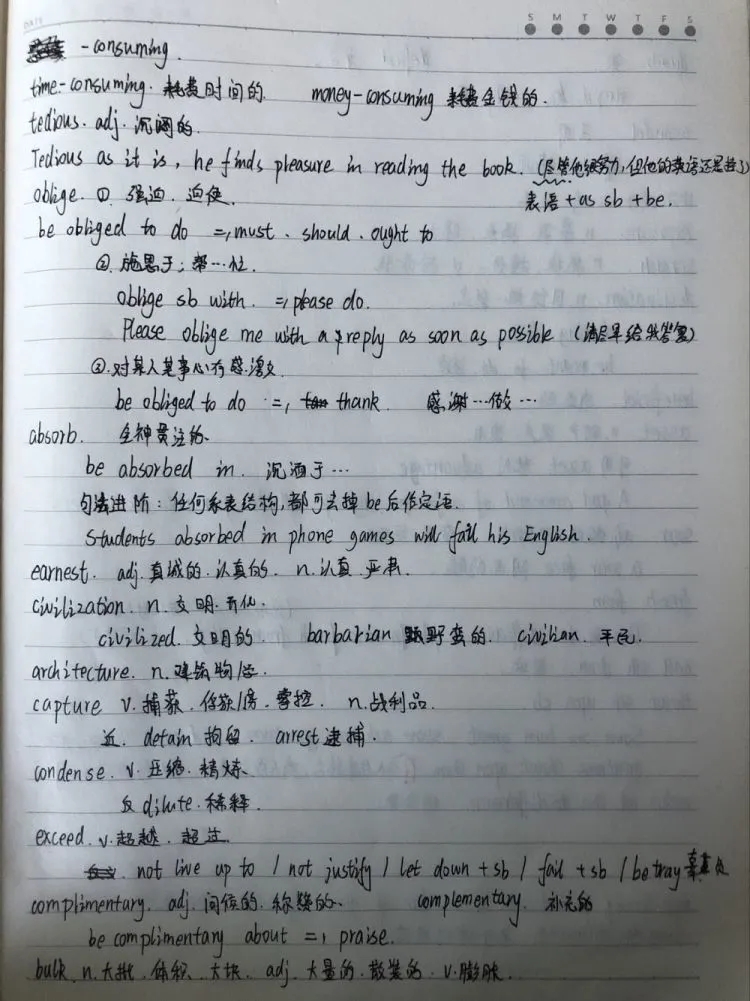 DATE S M T W T F S
-consuming.
time-consuming. 耗费时间的 money-consuming 耗费金钱的.
tedious. adj. 沉闷的.
Tedious as it is, he finds pleasure in reading the book. (尽管他很努力,但他的英语还是挂了)
oblige. ①. 强迫. 迫使. 表语+as sb+be.
be obliged to do =, must. should. ought to
②. 施恩于; 帮…忙.
oblige sb with. =, please do.
Please oblige me with a reply as soon as possible (请尽早给我答复)
③. 对某人某事心存感激
be obliged to do =, thank 感谢…做…
absorb. 全神贯注的.
be absorbed in. 沉湎于…
句法进阶: 任何系表结构,都可去掉be后作定语.
Students absorbed in phone games will fail his English.
earnest. adj. 真诚的. 认真的. n. 认真. 严肃.
civilization. n. 文明. 开化.
civilized. 文明的 barbarian 野蛮的. civilian. 平民.
architecture. n. 建筑物/学.
capture v. 捕获. 俘获/虏. 掌控. n. 战利品.
近. detain 拘留. arrest 逮捕.
condense. v. 压缩. 精炼.
反 dilute. 稀释.
exceed. v. 超越. 超过.
not live up to / not justify / let down + sb / fail + sb / betray 辜负
complimentary. adj. 问候的. 称赞的. complementary. 补充的
be complimentary about =, praise.
bulk n. 大批. 体积. 大块. adj. 大量的. 散装的. v. 膨胀.